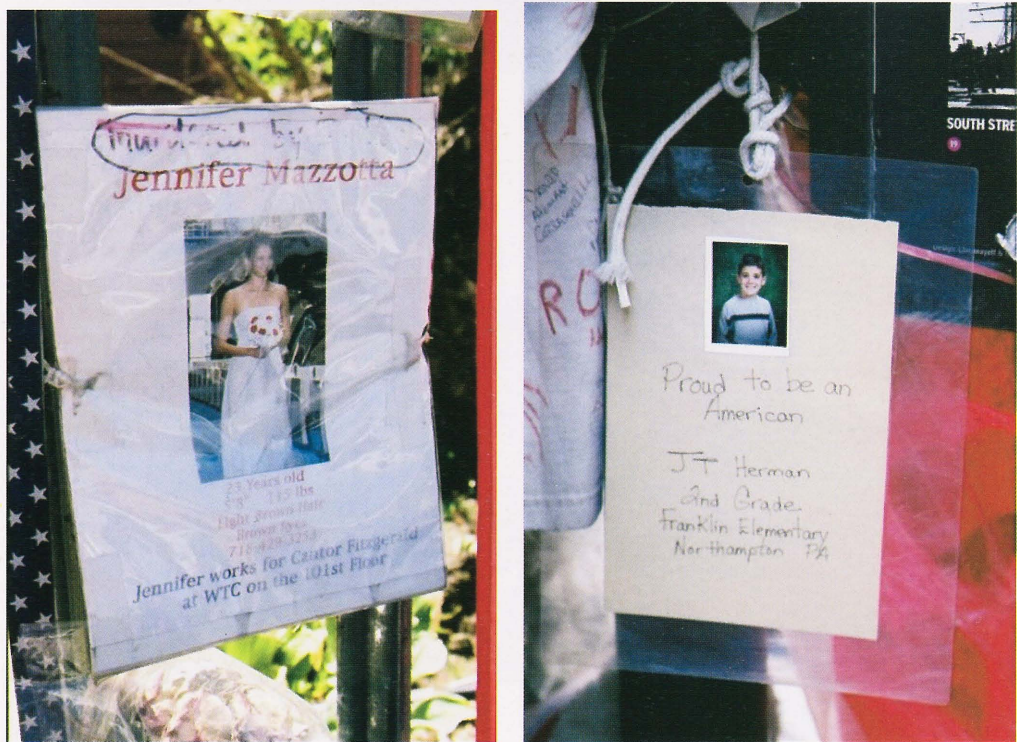 Murdered by
Jennifer Mazzotta
23 Years old
5'8" 115 lbs
Light Brown Hair
Brown Eyes
Jennifer works for Cantor Fitzgerald
at WTC on the 101st Floor
SOUTH STRE
19
RO
Proud to be an
American
JT Herman
2nd Grade
Franklin Elementary
Northampton PA